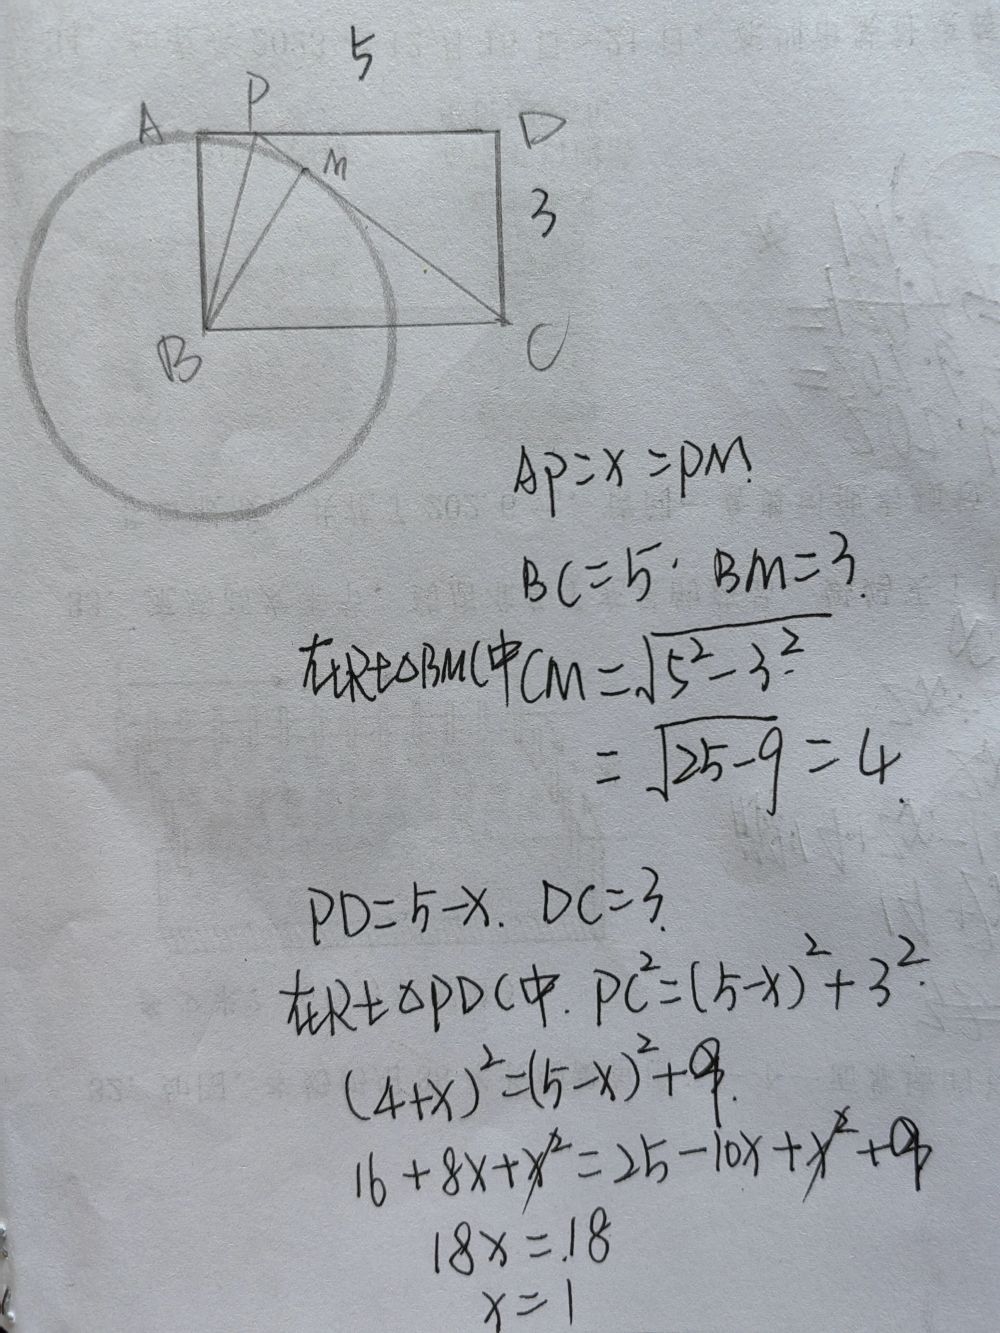 5
A P D
M
3
B C
AP=x=PM.
BC=5. BM=3.
在Rt△BMC中CM=√5²-3².
=√25-9=4.
PD=5-x. DC=3.
在Rt△PDC中. PC²=(5-x)²+3².
(4+x)²=(5-x)²+9.
16+8x+x²=25-10x+x²+9
18x=18
x=1